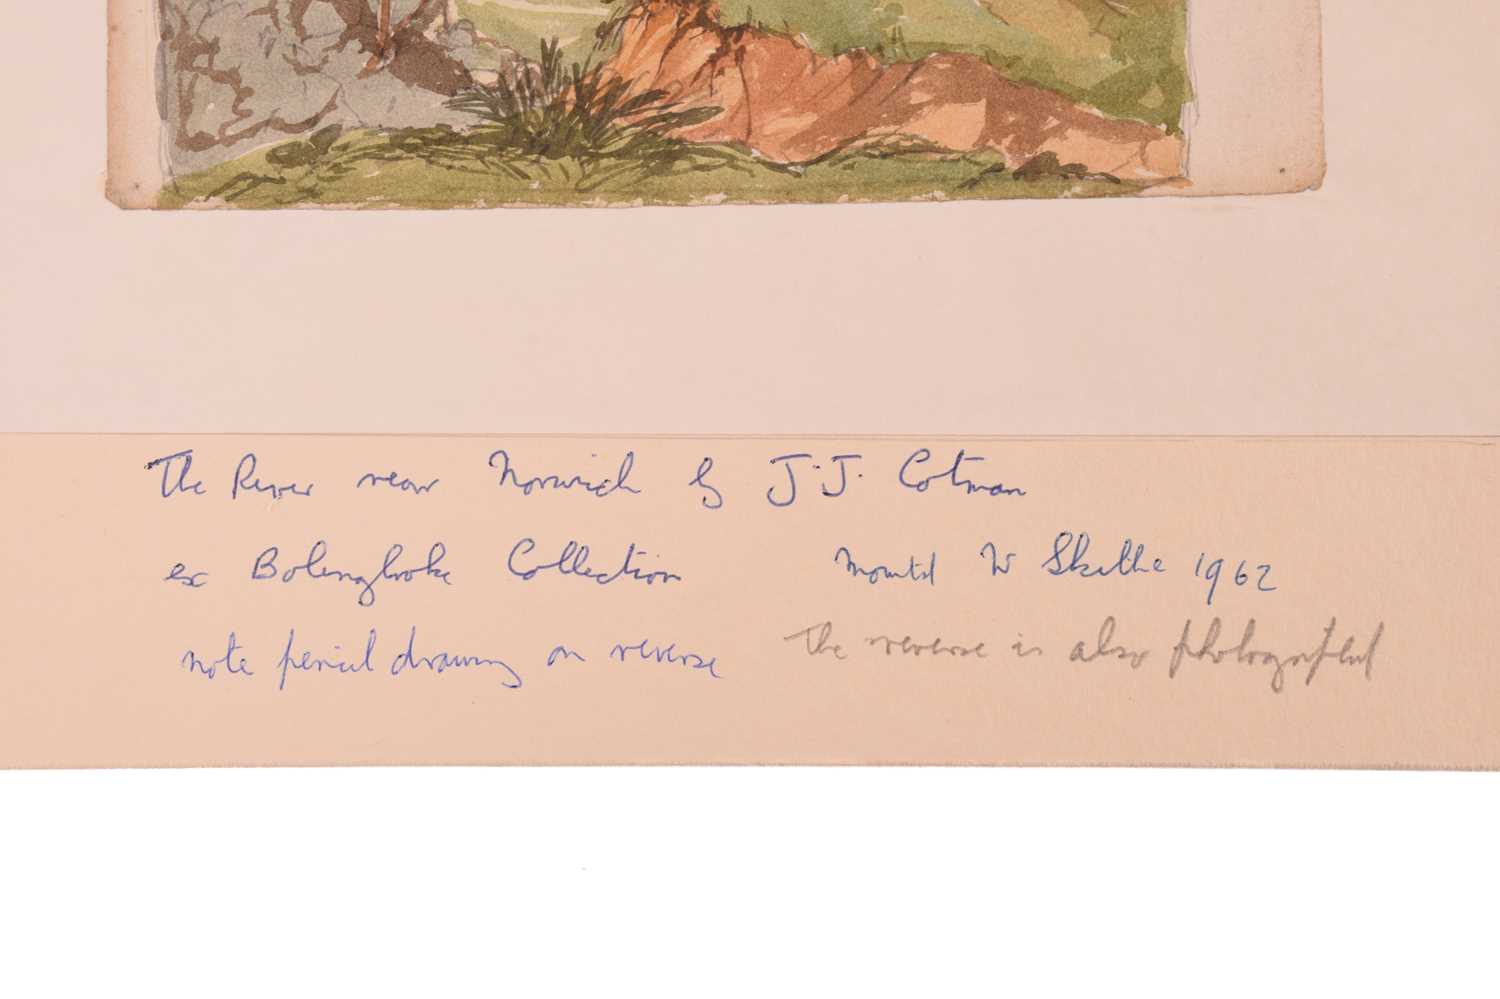 The River near Norwich by J.J. Cotman
ex Bolingbroke Collection mounted W Skettle 1962
note pencil drawing on reverse The reverse is also photographed